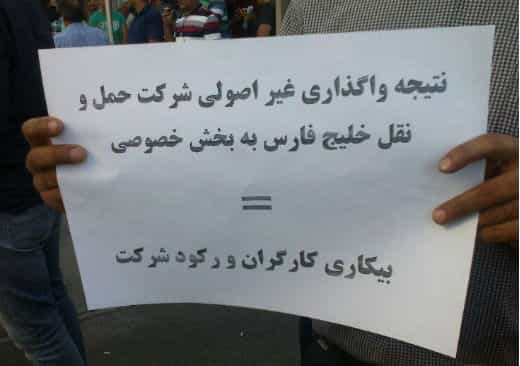 نتیجه واگذاری غیر اصولی شرکت حمل و
نقل خلیج فارس به بخش خصوصی
=
بیکاری کارگران و رکود شرکت